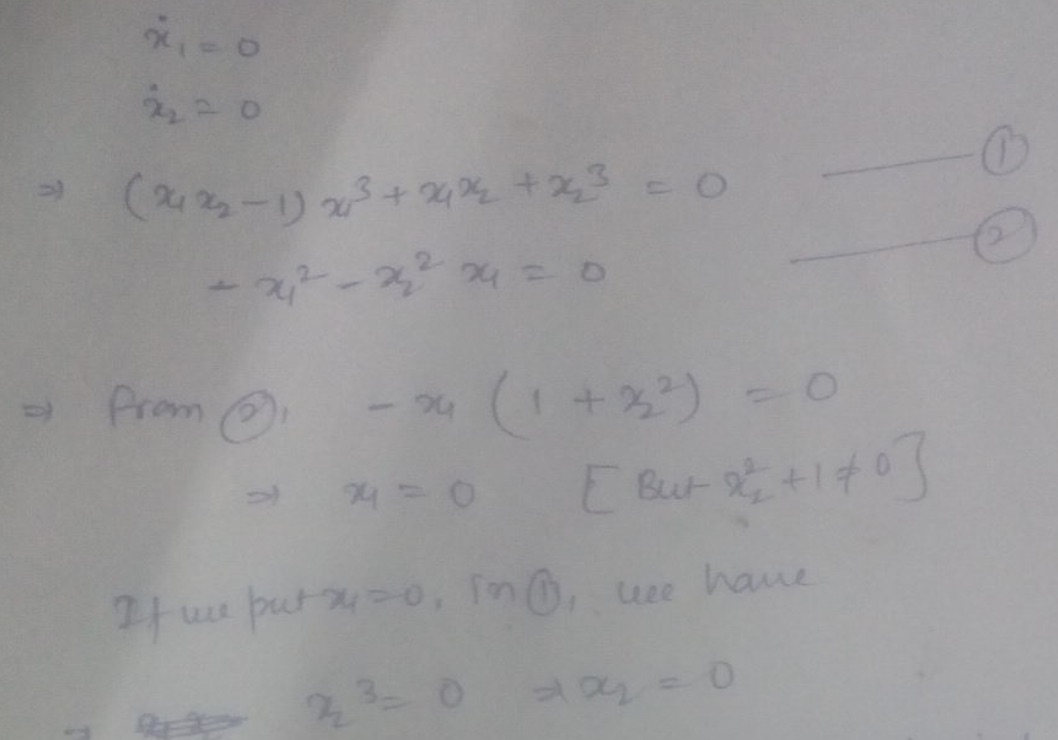 ẋ₁ = 0
ẋ₂ = 0
⇒ (x₁x₂ - 1) x₁³ + x₁x₂ + x₂³ = 0 —— ①
- x₁² - x₂² x₁ = 0 —— ②
⇒ from ②, - x₁ (1 + x₂²) = 0
⇒ x₁ = 0 [But x₂² + 1 ≠ 0]
If we put x₁ = 0, in ①, we have
⇒ x₂³ = 0 ⇒ x₂ = 0